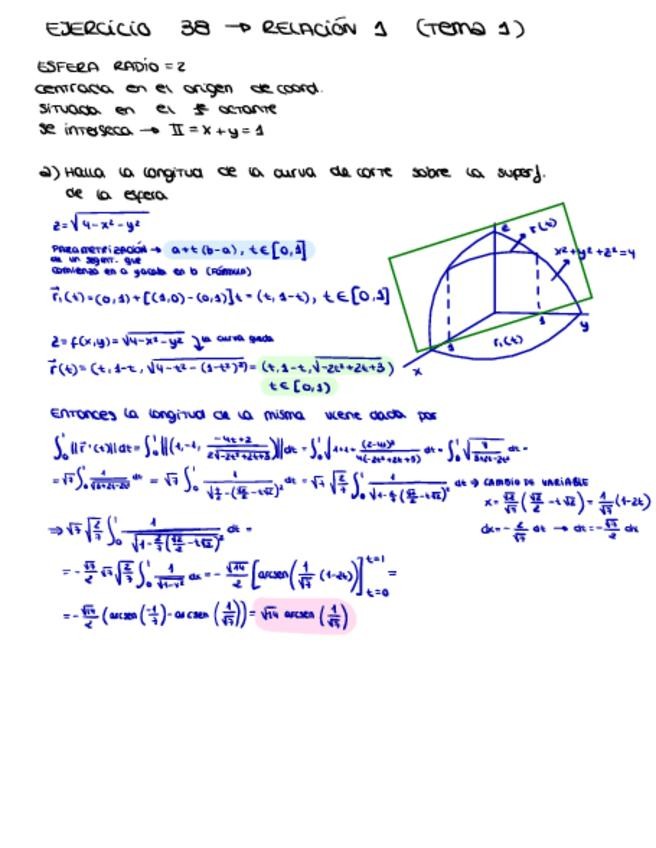 EJERCICIO 38 → RELACIÓN 1 (Tema 1)
ESFERA RADIO = 2
centrada en el origen de coord.
situada en el 1º octante
se interseca → Π = x + y = 1
a) Halla la longitud de la curva de corte sobre la superf.
de la esfera
z = √(4-x²-y²)
PARAMETRIZACIÓN → a+t(b-a), t∈[0,1]
de un segmt. que
comienza en a y acaba en b (FÓRMULA)
r₁(t) = (0,1)+[(1,0)-(0,1)]t = (t, 1-t), t∈[0,1]
z = f(x,y) = √(4-x²-y²) ↘ la curva queda
r(t) = (t, 1-t, √(4-t²-(1-t)²)) = (t, 1-t, √(-2t²+2t+3))
t∈[0,1)
z
r(t)
x²+y²+z²=4
1
1
y
x
r₁(t)
Entonces la longitud de la misma viene dada por
∫₀¹ ||r'(t)|| dt = ∫₀¹ ||(1, -1, (-4t+2)/(2√(-2t²+2t+3)))|| dt = ∫₀¹ √(1+1+(2-4t)²/(4(-2t²+2t+3))) dt = ∫₀¹ √(7/(3+2t-2t²)) dt =
= √7 ∫₀¹ 1/√(3+2t-2t²) dt = √7 ∫₀¹ 1/√(7/2-(√2/2-t√2)²) dt = √7 √(2/7) ∫₀¹ 1/√(1-2/7(√2/2-t√2)²) dt → CAMBIO DE VARIABLE
x = √2/√7 (√2/2 - t√2) = 1/√7 (1-2t)
dx = -2/√7 dt → dt = -√7/2 dx
⇒ √7 √(2/7) ∫₀¹ 1/√(1-2/7(√2/2-t√2)²) dt =
= -√7/2 √7 √(2/7) ∫₀¹ 1/√(1-x²) dx = -√14/2 [arcsen(1/√7 (1-2t))] t=1 t=0 =
= -√14/2 (arcsen(-1/√7) - arcsen(1/√7)) = √14 arcsen(1/√7)